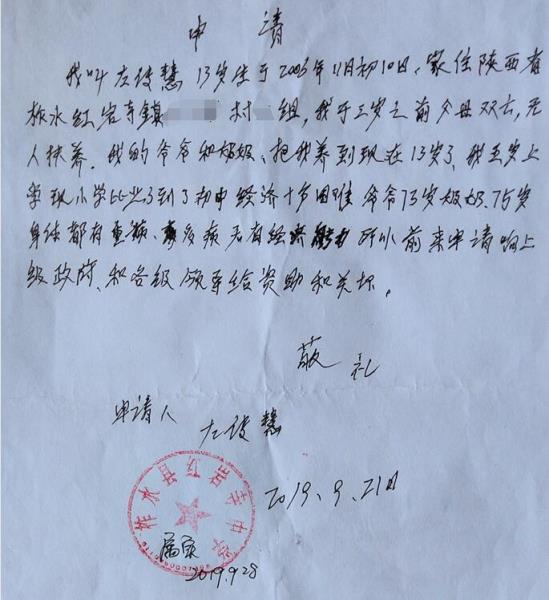 申 请
我叫左俊慧 13岁生于2005年11月初10日、家住陕西省
柞水红岩寺镇 村 组，我于三岁之前父母双亡，无
人扶养。我的爷爷和奶奶、把我养到现在13岁了，我五岁上
学现小学毕业了到了初中经济十分困难 爷爷73岁奶奶.75岁
身体都有重病、多疾病无有经济能力 所以前来申请响上
级政府、和各级领导给资助和关怀。
敬 礼
申请人 左俊慧
2019、9、21日
柞水县红岩寺中学
属实
2019.9.28